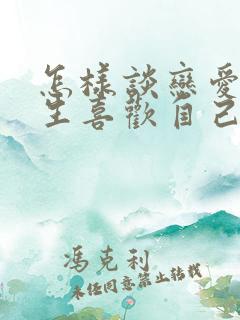 怎樣談戀愛
生喜歡自己
馮克利
未任同意禁止轉載